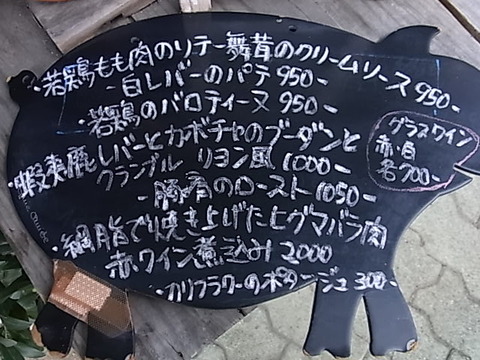 ・若鶏もも肉のソテー舞茸のクリームソース 950-
-白レバーのパテ 950-
・若鶏のバロティーヌ 950-
・蝦夷鹿レバーとカボチャのブーダンと
クランブル リヨン風 1000-
-豚肩のロースト 1050-
・網脂で焼き上げたヒグマバラ肉
赤ワイン煮込み 2000
・カリフラワーのポタージュ 300-
グラスワイン
赤・白
各700-